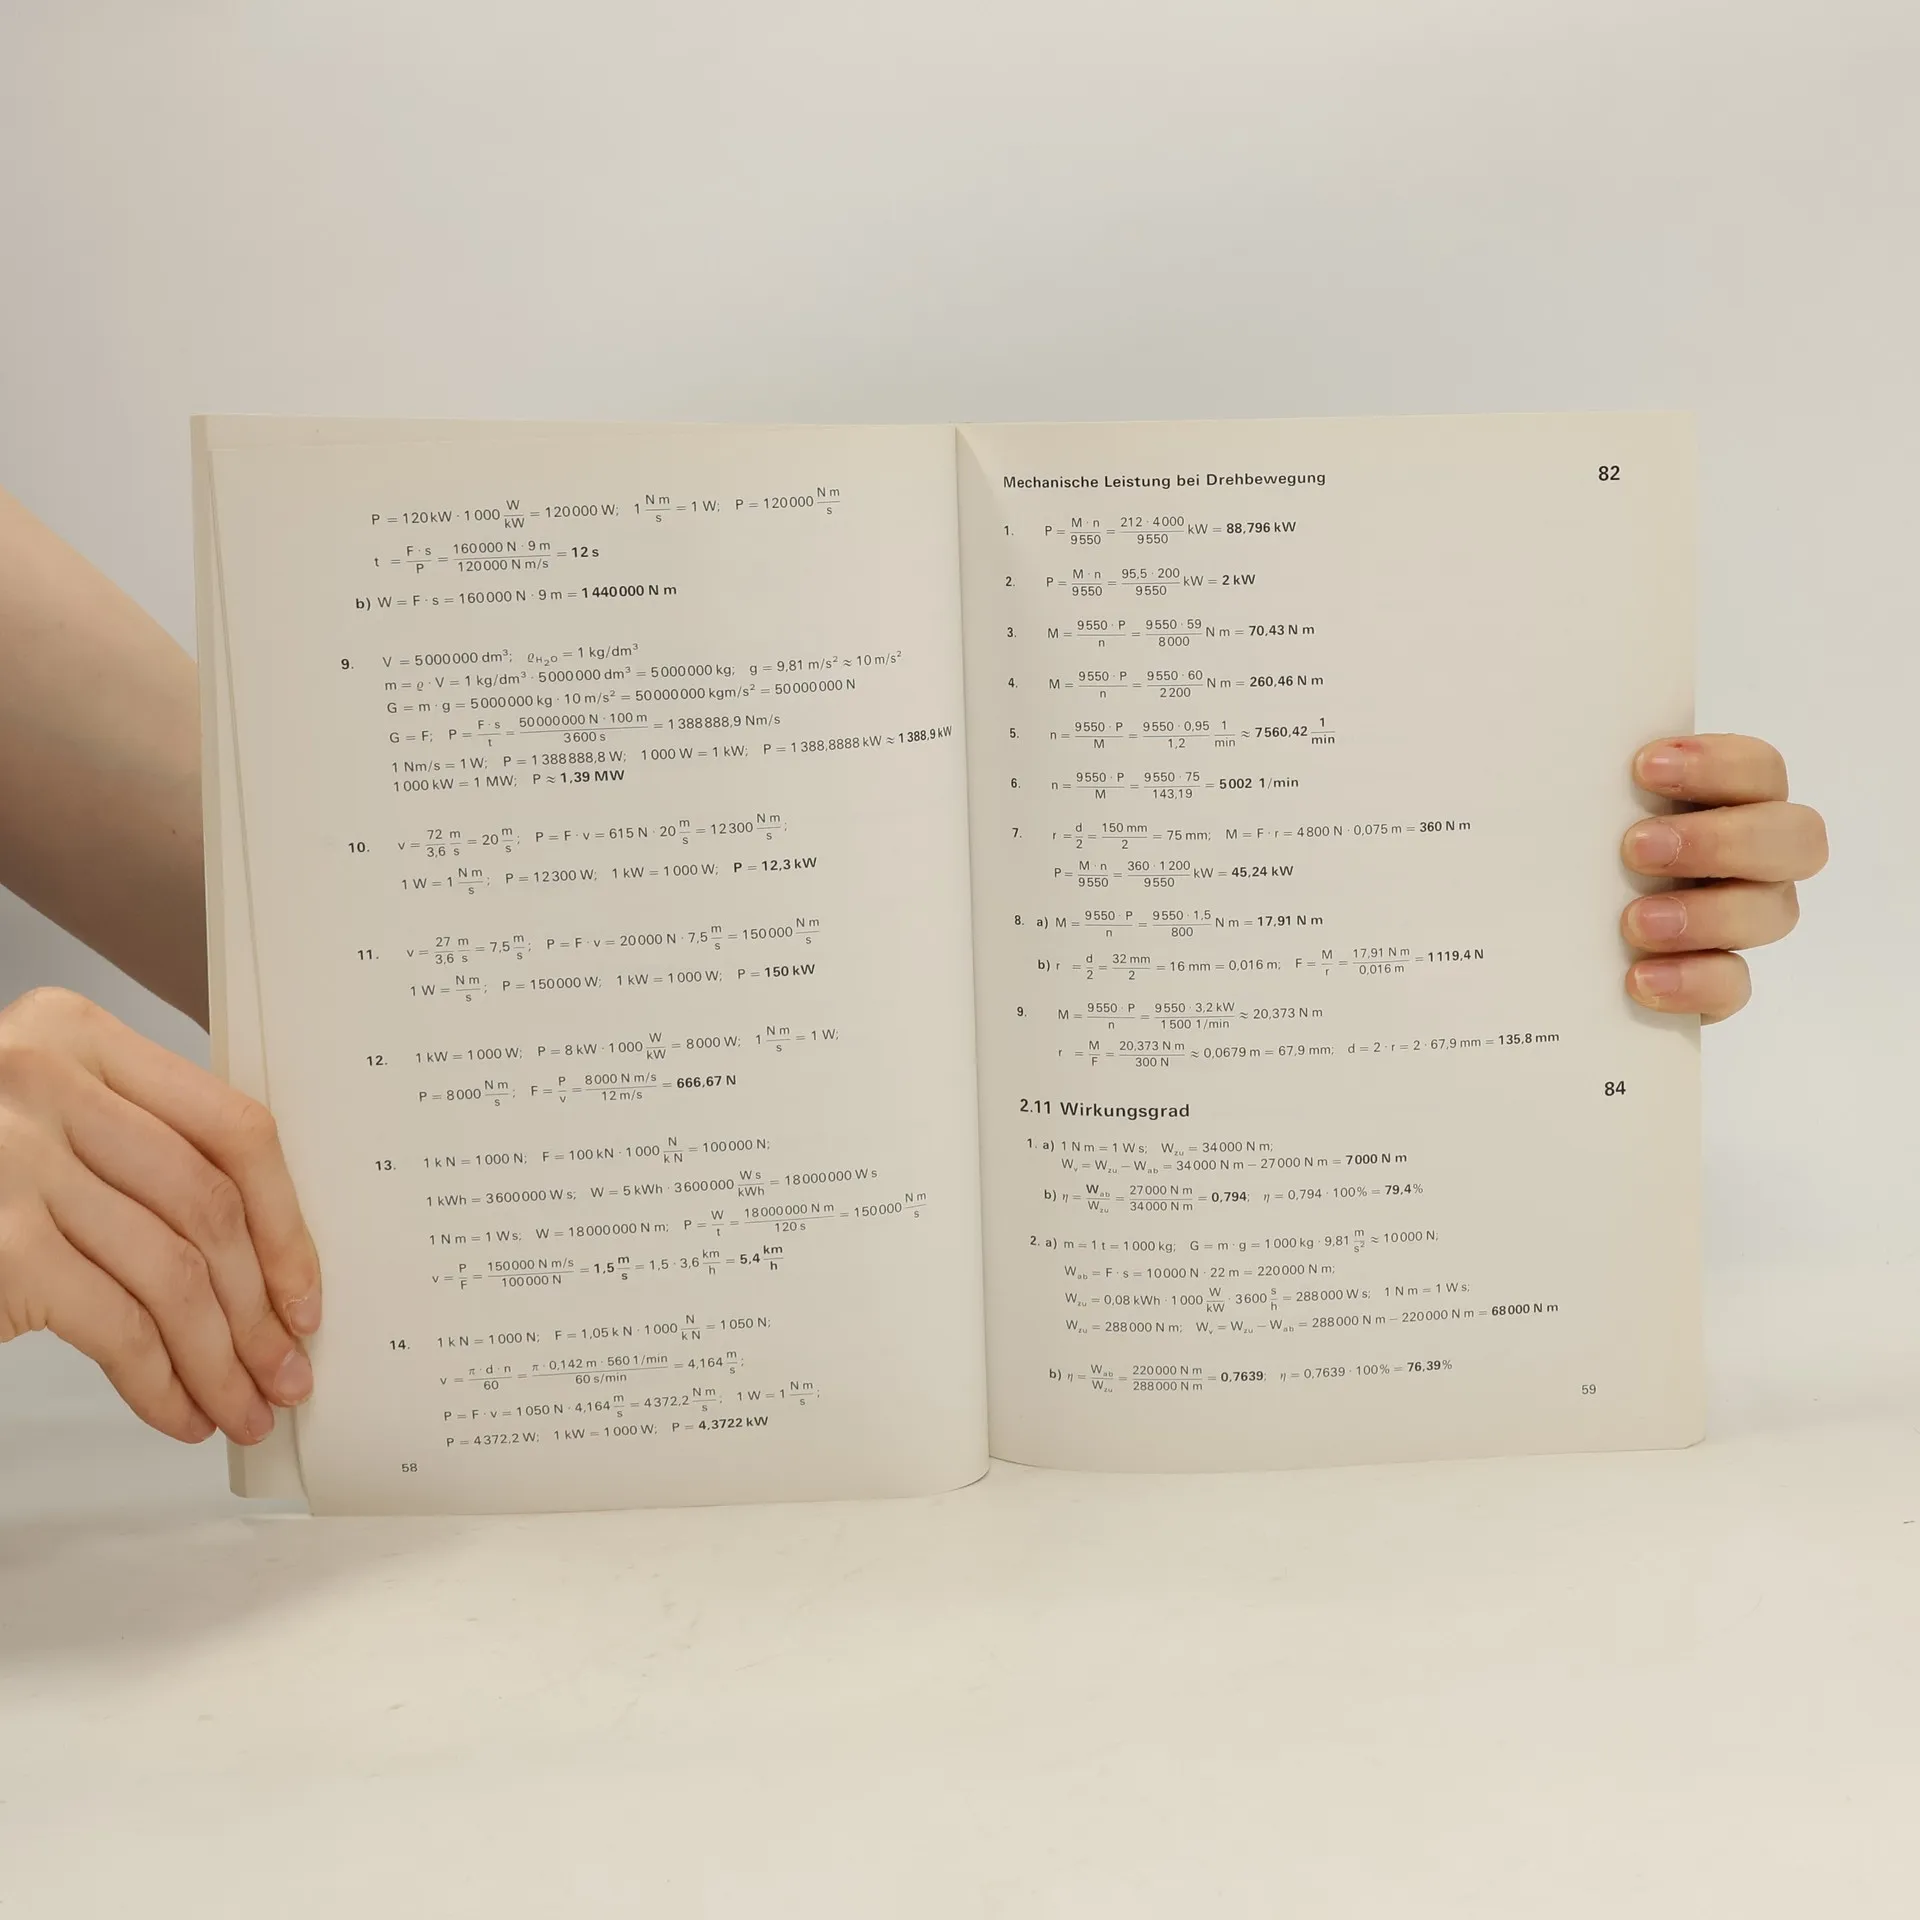 P = 120 kW · 1000 W/kW = 120000 W; 1 N m/s = 1 W; P = 120000 N m/s
t = F · s/P = 160000 N · 9 m/120000 N m/s = 12 s
b) W = F · s = 160000 N · 9 m = 1440000 N m
9. V = 5000000 dm³; ϱH₂O = 1 kg/dm³
m = ϱ · V = 1 kg/dm³ · 5000000 dm³ = 5000000 kg; g = 9,81 m/s² ≈ 10 m/s²
G = m · g = 5000000 kg · 10 m/s² = 50000000 kgm/s² = 50000000 N
G = F; P = F · s/t = 50000000 N · 100 m/3600 s = 1388888,9 Nm/s
1 Nm/s = 1 W; P = 1388888,8 W; 1000 W = 1 kW; P = 1388,8888 kW ≈ 1388,9 kW
1000 kW = 1 MW; P ≈ 1,39 MW
10. v = 72/3,6 m/s = 20 m/s; P = F · v = 615 N · 20 m/s = 12300 N m/s;
1 W = 1 N m/s; P = 12300 W; 1 kW = 1000 W; P = 12,3 kW
11. v = 27/3,6 m/s = 7,5 m/s; P = F · v = 20000 N · 7,5 m/s = 150000 N m/s
1 W = N m/s; P = 150000 W; 1 kW = 1000 W; P = 150 kW
12. 1 kW = 1000 W; P = 8 kW · 1000 W/kW = 8000 W; 1 N m/s = 1 W;
P = 8000 N m/s; F = P/v = 8000 N m/s/12 m/s = 666,67 N
13. 1 k N = 1000 N; F = 100 kN · 1000 N/k N = 100000 N;
1 kWh = 3600000 W s; W = 5 kWh · 3600000 W s/kWh = 18000000 W s
1 N m = 1 W s; W = 18000000 N m; P = W/t = 18000000 N m/120 s = 150000 N m/s
v = P/F = 150000 N m/s/100000 N = 1,5 m/s = 1,5 · 3,6 km/h = 5,4 km/h
14. 1 k N = 1000 N; F = 1,05 k N · 1000 N/k N = 1050 N;
v = π · d · n/60 = π · 0,142 m · 560 1/min/60 s/min = 4,164 m/s;
P = F · v = 1050 N · 4,164 m/s = 4372,2 N m/s; 1 W = 1 N m/s;
P = 4372,2 W; 1 kW = 1000 W; P = 4,3722 kW
58
Mechanische Leistung bei Drehbewegung 82
1. P = M · n/9550 = 212 · 4000/9550 kW = 88,796 kW
2. P = M · n/9550 = 95,5 · 200/9550 kW = 2 kW
3. M = 9550 · P/n = 9550 · 59/8000 N m = 70,43 N m
4. M = 9550 · P/n = 9550 · 60/2200 N m = 260,46 N m
5. n = 9550 · P/M = 9550 · 0,95/1,2 1/min ≈ 7560,42 1/min
6. n = 9550 · P/M = 9550 · 75/143,19 = 5002 1/min
7. r = d/2 = 150 mm/2 = 75 mm; M = F · r = 4800 N · 0,075 m = 360 N m
P = M · n/9550 = 360 · 1200/9550 kW = 45,24 kW
8. a) M = 9550 · P/n = 9550 · 1,5/800 N m = 17,91 N m
b) r = d/2 = 32 mm/2 = 16 mm = 0,016 m; F = M/r = 17,91 N m/0,016 m = 1119,4 N
9. M = 9550 · P/n = 9550 · 3,2 kW/1500 1/min ≈ 20,373 N m
r = M/F = 20,373 N m/300 N ≈ 0,0679 m = 67,9 mm; d = 2 · r = 2 · 67,9 mm = 135,8 mm
2.11 Wirkungsgrad 84
1. a) 1 N m = 1 W s; Wzu = 34000 N m;
Wv = Wzu − Wab = 34000 N m − 27000 N m = 7000 N m
b) η = Wab/Wzu = 27000 N m/34000 N m = 0,794; η = 0,794 · 100% = 79,4%
2. a) m = 1 t = 1000 kg; G = m · g = 1000 kg · 9,81 m/s² ≈ 10000 N;
Wab = F · s = 10000 N · 22 m = 220000 N m;
Wzu = 0,08 kWh · 1000 W/kW · 3600 s/h = 288000 W s; 1 N m = 1 W s;
Wzu = 288000 N m; Wv = Wzu − Wab = 288000 N m − 220000 N m = 68000 N m
b) η = Wab/Wzu = 220000 N m/288000 N m = 0,7639; η = 0,7639 · 100% = 76,39%
59